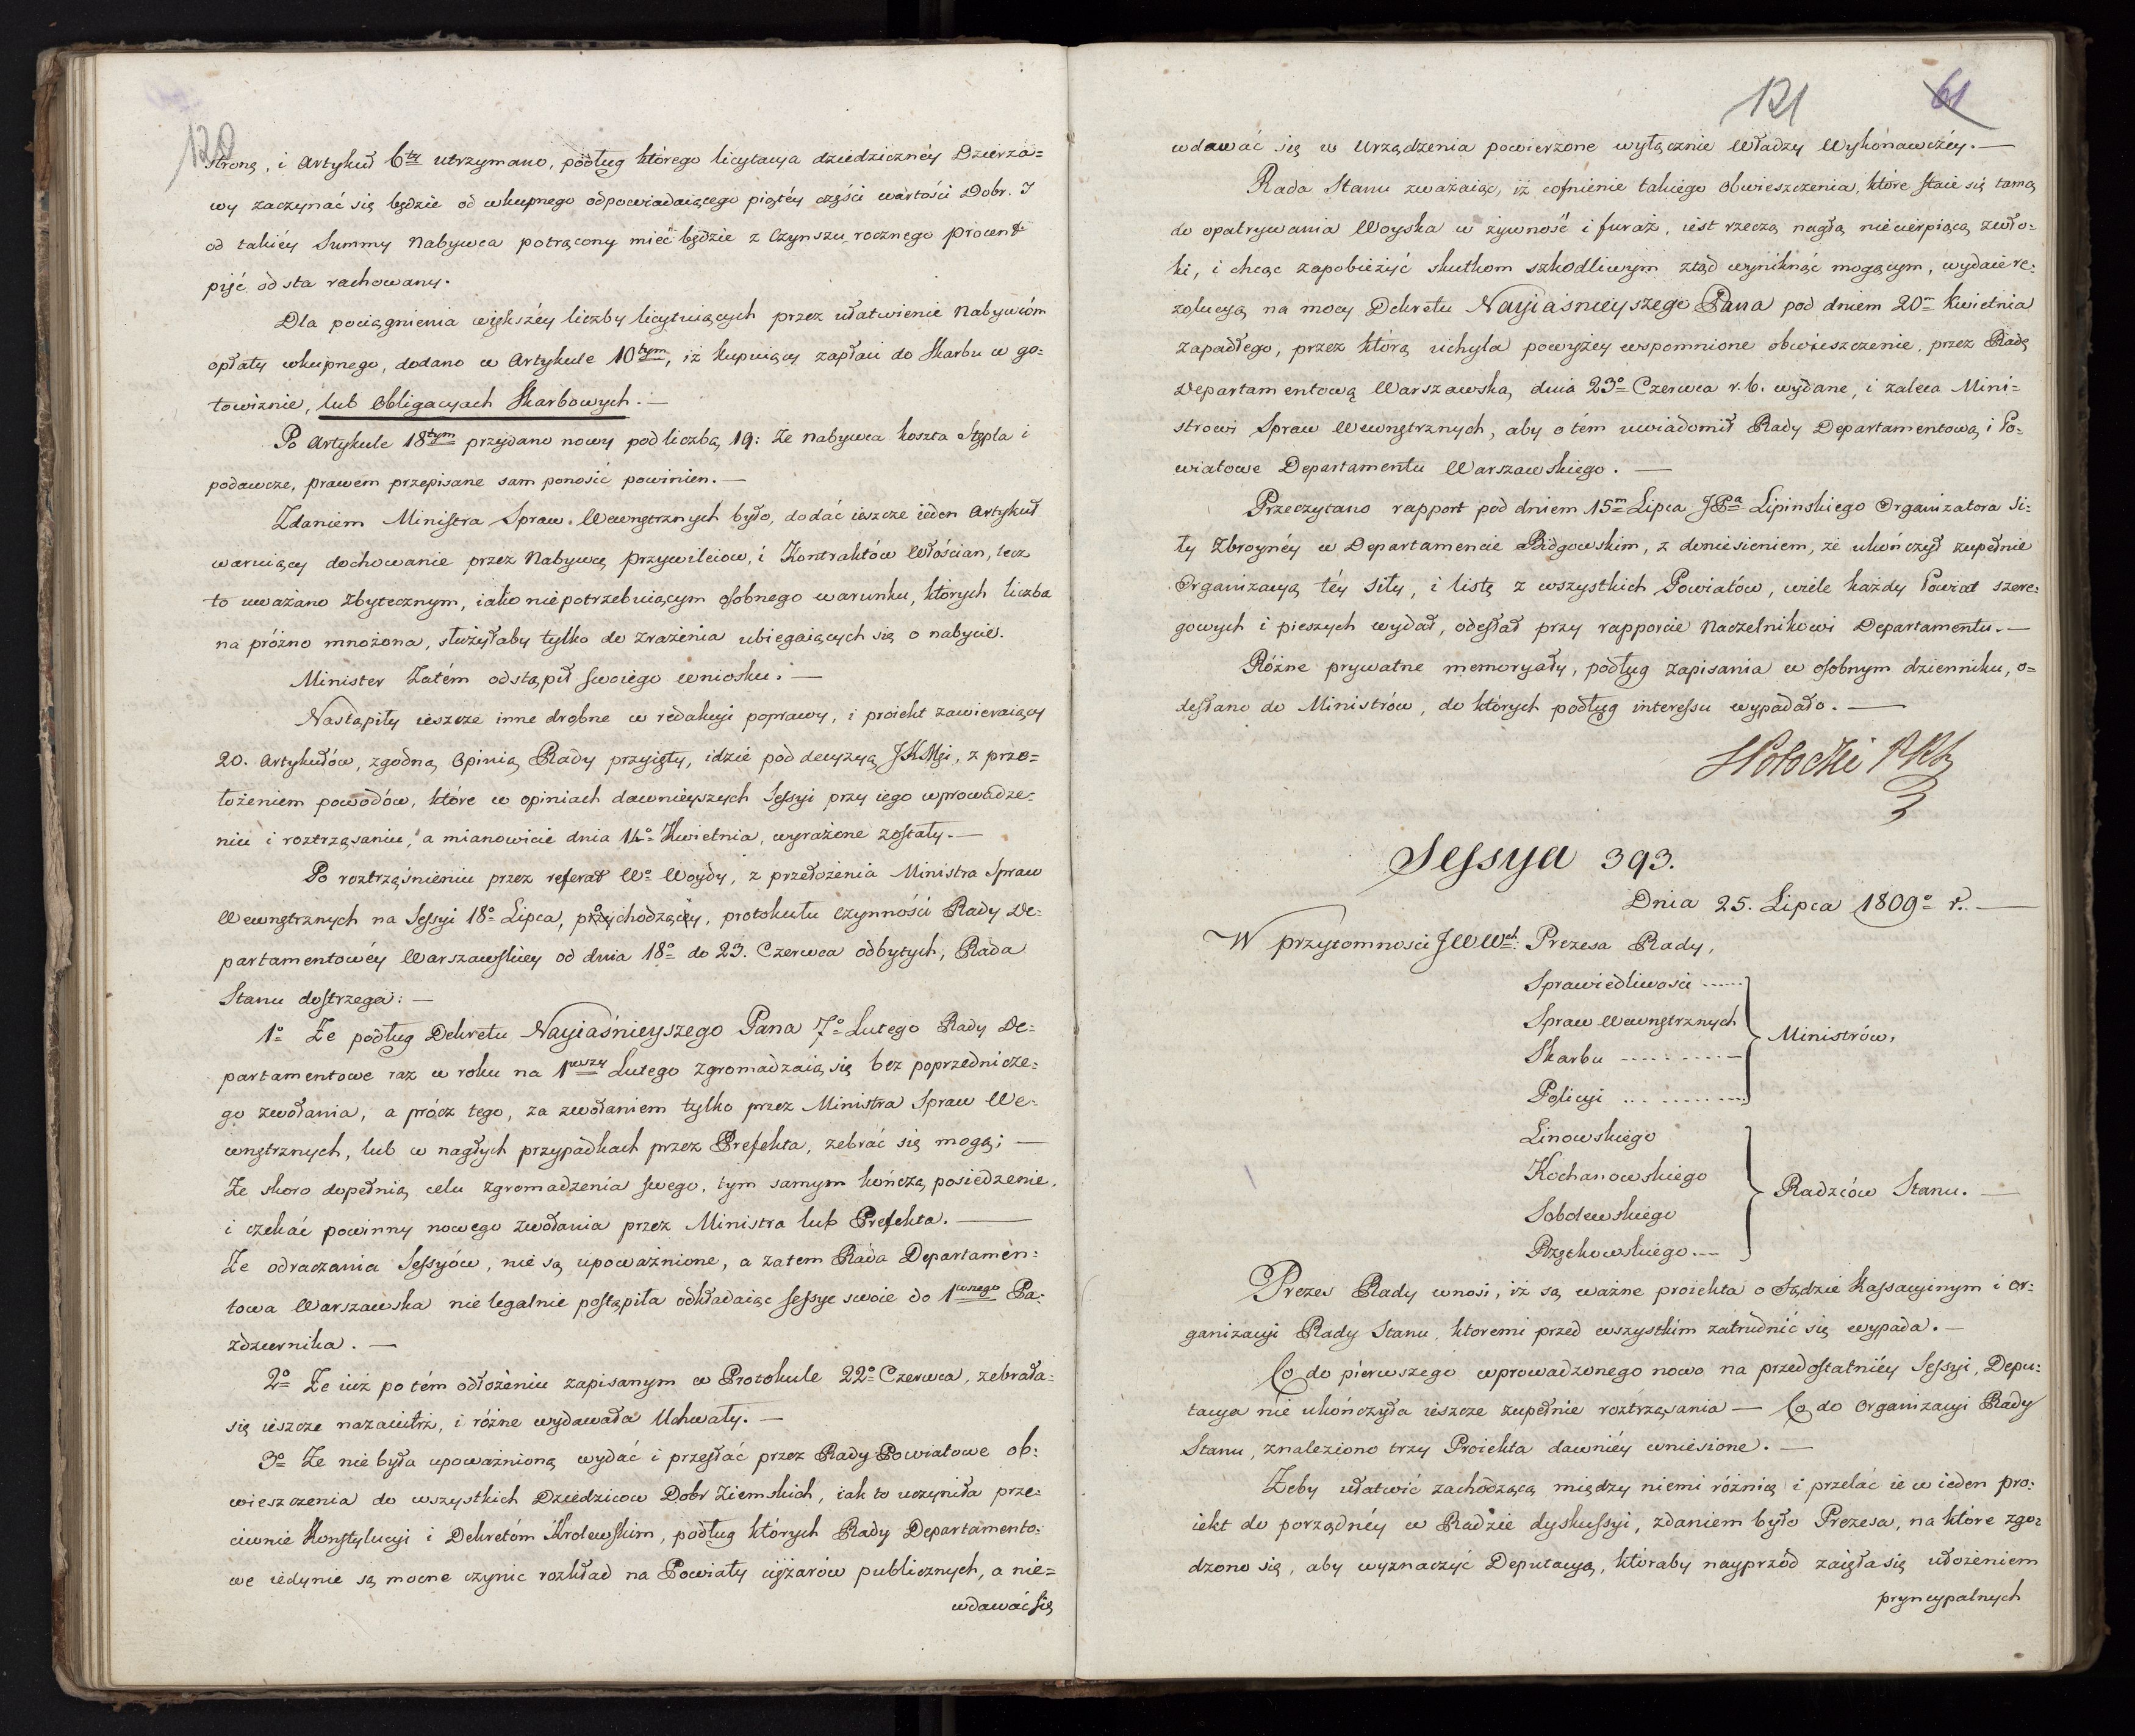 120
stroną, i Artykuł 6ty utrzymano, podług którego licytacya dziedzicznéy Dzierża=
wy zaczynać się będzie od wkupnego odpowiadaiącego piątéy części wartości Dobr. I
od takiéy Summy Nabywca potrącony mieć będzie z Czynszu rocznego procent
pięć od sta rachowany.
Dla pociągnienia większéy liczby licytuiących przez ułatwienie Nabywcóm
opłaty wkupnego, dodano w Artykule 10tym, iż kupuiący zapłaci do Skarbu w go=
towiznie, lub Obligacyach Skarbowych. —
Po Artykule 18tym przydano nowy pod liczbą 19: że Nabywca koszta Stępla i
podawcze, prawem przepisane sam ponosić powinien. —
Zdaniem Ministra Spraw Wewnętrznych było, dodać ieszcze ieden Artykuł
waruiący dochowanie przez Nabywcę przywileiow, i Kontraktów Włościan, lecz
to uważano zbytecznym, iako niepotrzebuiącym osobnego warunku, których liczba
na próżno mnożona, służyłaby tylko do zrażenia ubiegaiących się o nabycie.
Minister Zatém odstąpił swoiego wniosku. —
Nastąpiły ieszcze inne drobne w redakcyi poprawy, i proiekt zawieraiący
20. Artykułów, zgodną Opinią Rady przyięty, idzie pod decyzyą JKMci, z prze=
łożeniem powodów, które w opiniach dawnieyszych Sessyi przy iego wprowadze=
niu i roztrząsaniu, a mianowicie dnia 14o Kwietnia, wyrażone zostały. —
Po roztrząśnieniu przez referat Wo Woydy, z przełożenia Ministra Spraw
Wewnętrznych na Sessyi 18o Lipca, pochodzący, protokułu czynności Rady De=
partamentowéy Warszawskiey od dnia 18o do 23. Czerwca odbytych, Rada
Stanu dostrzega: —
1o Że podług Dekretu Nayiaśnieyszego Pana 7o Lutego Rady De=
partamentowe raz w roku na 1wszy Lutego zgromadzaią się bez poprzednicze=
go zwołania, a prócz tego, za zwołaniem tylko przez Ministra Spraw We=
wnętrznych, lub w nagłych przypadkach przez Prefekta, zebrać się mogą; —
Że skoro dopełnią celu zgromadzenia swego, tym samym kończą posiedzenie,
i czekać powinny nowego zwołania przez Ministra lub Prefekta. —
Że odraczania Sessyów, nie są upoważnione, a zatem Rada Departamen=
towa Warszawska nie legalnie postąpiła odkładaiąc sessye swoie do 1wszego Pa=
zdziernika. —
2o Że iuż po tém odłożeniu zapisanym w Protokule 22o Czerwca, zebrała=
się ieszcze nazaiutrz, i różne wydawała Uchwały. —
3o Że nie była upoważnioną wydać i przesłać przez Rady Powiatowe ob=
wieszczenia do wszystkich Dziedzicow Dobr Ziemskich, iak to uczyniła prze=
ciwnie Konstytucyi i Dekretóm Krolewskim, podług których Rady Departamento=
we iedynie są mocne czynic rozkład na Powiaty ciężarów publicznych, a nie=
wdawać się
121
61
wdawać się w Urządzenia powierzone wyłącznie Władzy Wykónawczéy. —
Rada Stanu zważaiąc, iż cofnienie takiego Obwieszczenia, które staie się tamą
do opatrywania Woyska w żywność i furaż, iest rzeczą nagłą niecierpiącą zwło=
ki, i chcąc zapobieżyć skutkom szkodliwym ztąd wyniknąć mogącym, wydaie re=
zolucyą na mocy Dekretu Nayiaśnieyszego Pana pod dniem 20m Kwietnia
zapadłego, przez którą uchyla powyżey wspomnione obwieszczenie, przez Radę
Departamentową Warszawską dnia 23o Czerwca r.b. wydane, i zaleca Mini=
strowi Spraw Wewnętrznych, aby o tém uwiadomił Rady Departamentową i Po=
wiatowe Departamentu Warszawskiego. —
Przeczytano rapport pod dniem 15m Lipca JPa Lipinskiego Organizatora Si=
ły Zbroynéy w Departamencie Bidgowskim, z doniesieniem, że ukończył zupełnie
Organizacyą téy siły, i listę z wszystkich Powiatów, wiele każdy Powiat szere=
gowych i pieszych wydał, odesłał przy rapporcie Naczelnikowi Departamentu. —
Różne prywatne memoryały, podług zapisania w osobnym dzienniku, o=
desłano do Ministrów, do których podług interessu wypadało. —
SPotocki
Sessya 393.
Dnia 25. Lipca 1809o r. —
W przytomnosci JWWch: Prezesa Rady,
Sprawiedliwości
Spraw Wewnętrznych
Skarbu
Policyi
Ministrów,
Linowskiego
Kochanowskiego
Sobolewskiego
Rzętkowskiego
Radzców Stanu. —
Prezes Rady wnosi, iż są ważne proiekta o Sądzie Kassacyinym i Or=
ganizacyi Rady Stanu, ktoremi przed wszystkim zatrudnić się wypada. —
Co do pierwszego wprowadzonego nowo na przedostatniéy Sessyi, Depu=
tacya nie ukończyła ieszcze zupełnie roztrząsania — Co do Organizacyi Rady
Stanu, znaleziono trzy Proiekta dawniéy wniesione. —
Żeby ułatwić zachodzącą między niemi różnicę i przelać ie w ieden pro=
iekt do porządnéy w Radzie dyskussyi, zdaniem było Prezesa, na które zgo=
dzono się, aby wyznaczyć Deputacyą, któraby nayprzód zaięła się ułożeniem
pryncypalnych